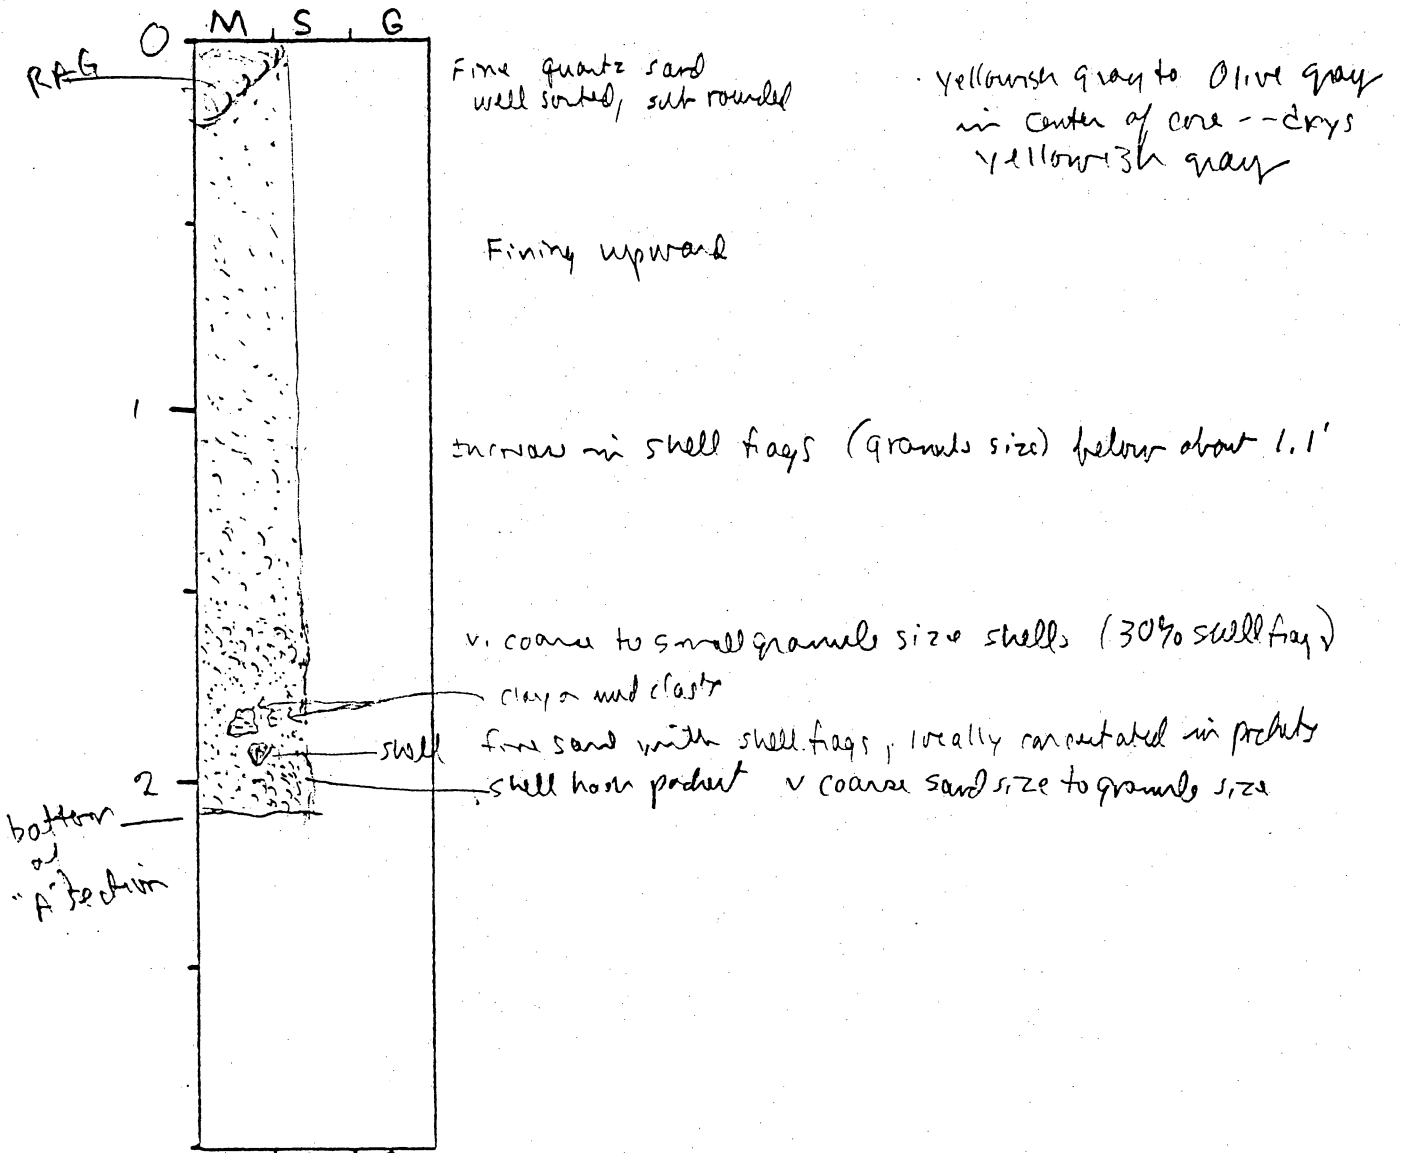 M S G
0
RAG
Fine quartz sand
well sorted, sub rounded
yellowish gray to Olive gray
in center of core -- drys
yellowish gray
Fining upward
1
Increase in shell frags (granule size) below about 1.1'
v. coarse to small granule size shells (30% shell frags)
clay or mud clasts
shell
fine sand with shell frags, locally concentrated in pockets
2
shell hash pocket v coarse sand size to granule size
bottom
of
"A" section